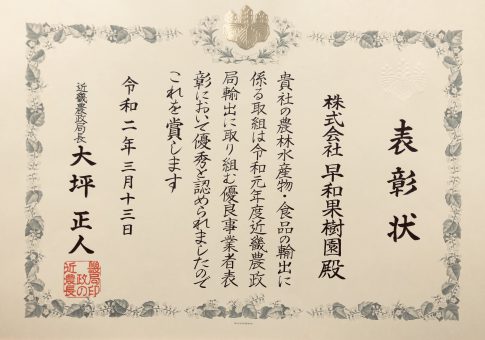 表彰状
株式会社 早和果樹園殿
貴社の農林水産物・食品の輸出に
係る取組は令和元年度近畿農政
局輸出に取り組む優良事業者表
彰において優秀を認められましたので
これを賞します
令和二年三月十三日
近畿農政局長 大坪正人